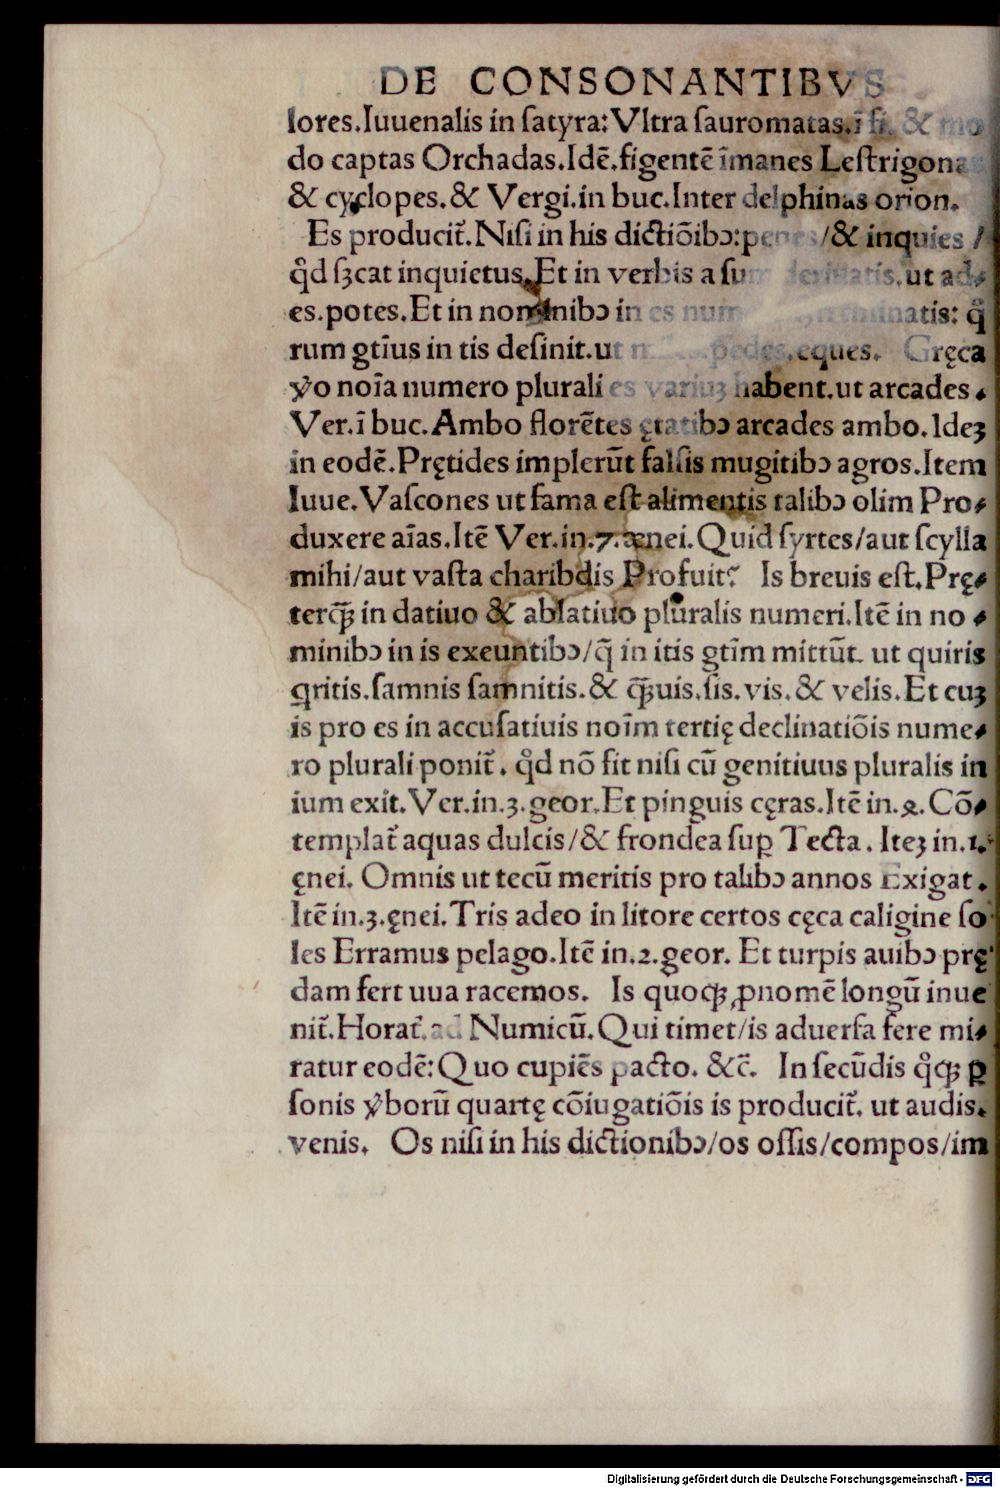 DE CONSONANTIBVS
lores.Iuuenalis in ſatyra:Vltra ſauromatas.ī ſi. & mo
do captas Orchadas.Idē.figentē īmanes Leſtrigonas
& cyclopes.& Vergi.in buc.Inter delphinas orion.
Es producit᷑.Niſi in his dictiōibꝰ:penes/& inquies /
qd̉ ſꝫcat inquietus.Et in verbis a ſum ut ad⸗
es.potes.Et in nominibꝰ in es num atis: q̉
rum gtīus in tis deſinit.ut pedes.eques. Gręca
v̉o noīa numero plurali es variuꝫ habent.ut arcades.
Ver.ī buc.Ambo florētes ętatibꝰ arcades ambo.Ideꝫ
in eodē.Prętides implerūt falſis mugitibꝰ agros.Item
Iuue.Vaſcones ut fama eſt alimentis talibꝰ olim Pro⸗
duxere aīas.Itē Ver.in.7.ænei.Quid ſyrtes/aut ſcylla
mihi/aut vaſta charibdis Profuit? Is breuis eſt.Prę⸗
terq̄ꝫ in datiuo & ablatiuo pluralis numeri.Itē in no⸗
minibꝰ in is exeuntibꝰ/q̄ in itis gtīm mittūt. ut quiris
q̇ritis.ſamnis ſamnitis.& q̄ꝫuis.ſis.vis.& velis.Et cuꝫ
is pro es in accuſatiuis noīm tertię declinatiōis nume⸗
ro plurali ponit᷑. qd̉ nō fit niſi cū genitiuus pluralis in
ium exit.Ver.in.3.geor.Et pinguis cęras.Itē in.4.Cō⸗
templat᷑ aquas dulcis/& frondea ſuꝑ Tecta. Iteꝫ in.1.
ęnei. Omnis ut tecū meritis pro talibꝰ annos Exigat.
Itē in.3.ęnei.Tris adeo in litore certos cęca caligine ſo
les Erramus pelago.Itē in.2.geor. Et turpis auibꝰ prę
dam fert uua racemos. Is quoqꝫ ꝓnomē longū inue
nit᷑.Horat᷑.ad Numicū.Qui timet/is aduerſa fere mi⸗
ratur eodē:Quo cupiēs pacto. &c̄. In ſecūdis q̉qꝫ ꝑ
ſonis v̉borū quartę cōiugatiōis is producit᷑. ut audis.
venis. Os niſi in his dictionibꝰ/os oſſis/compos/im
Digitalisierung gefördert durch die Deutsche Forschungsgemeinschaft - DFG